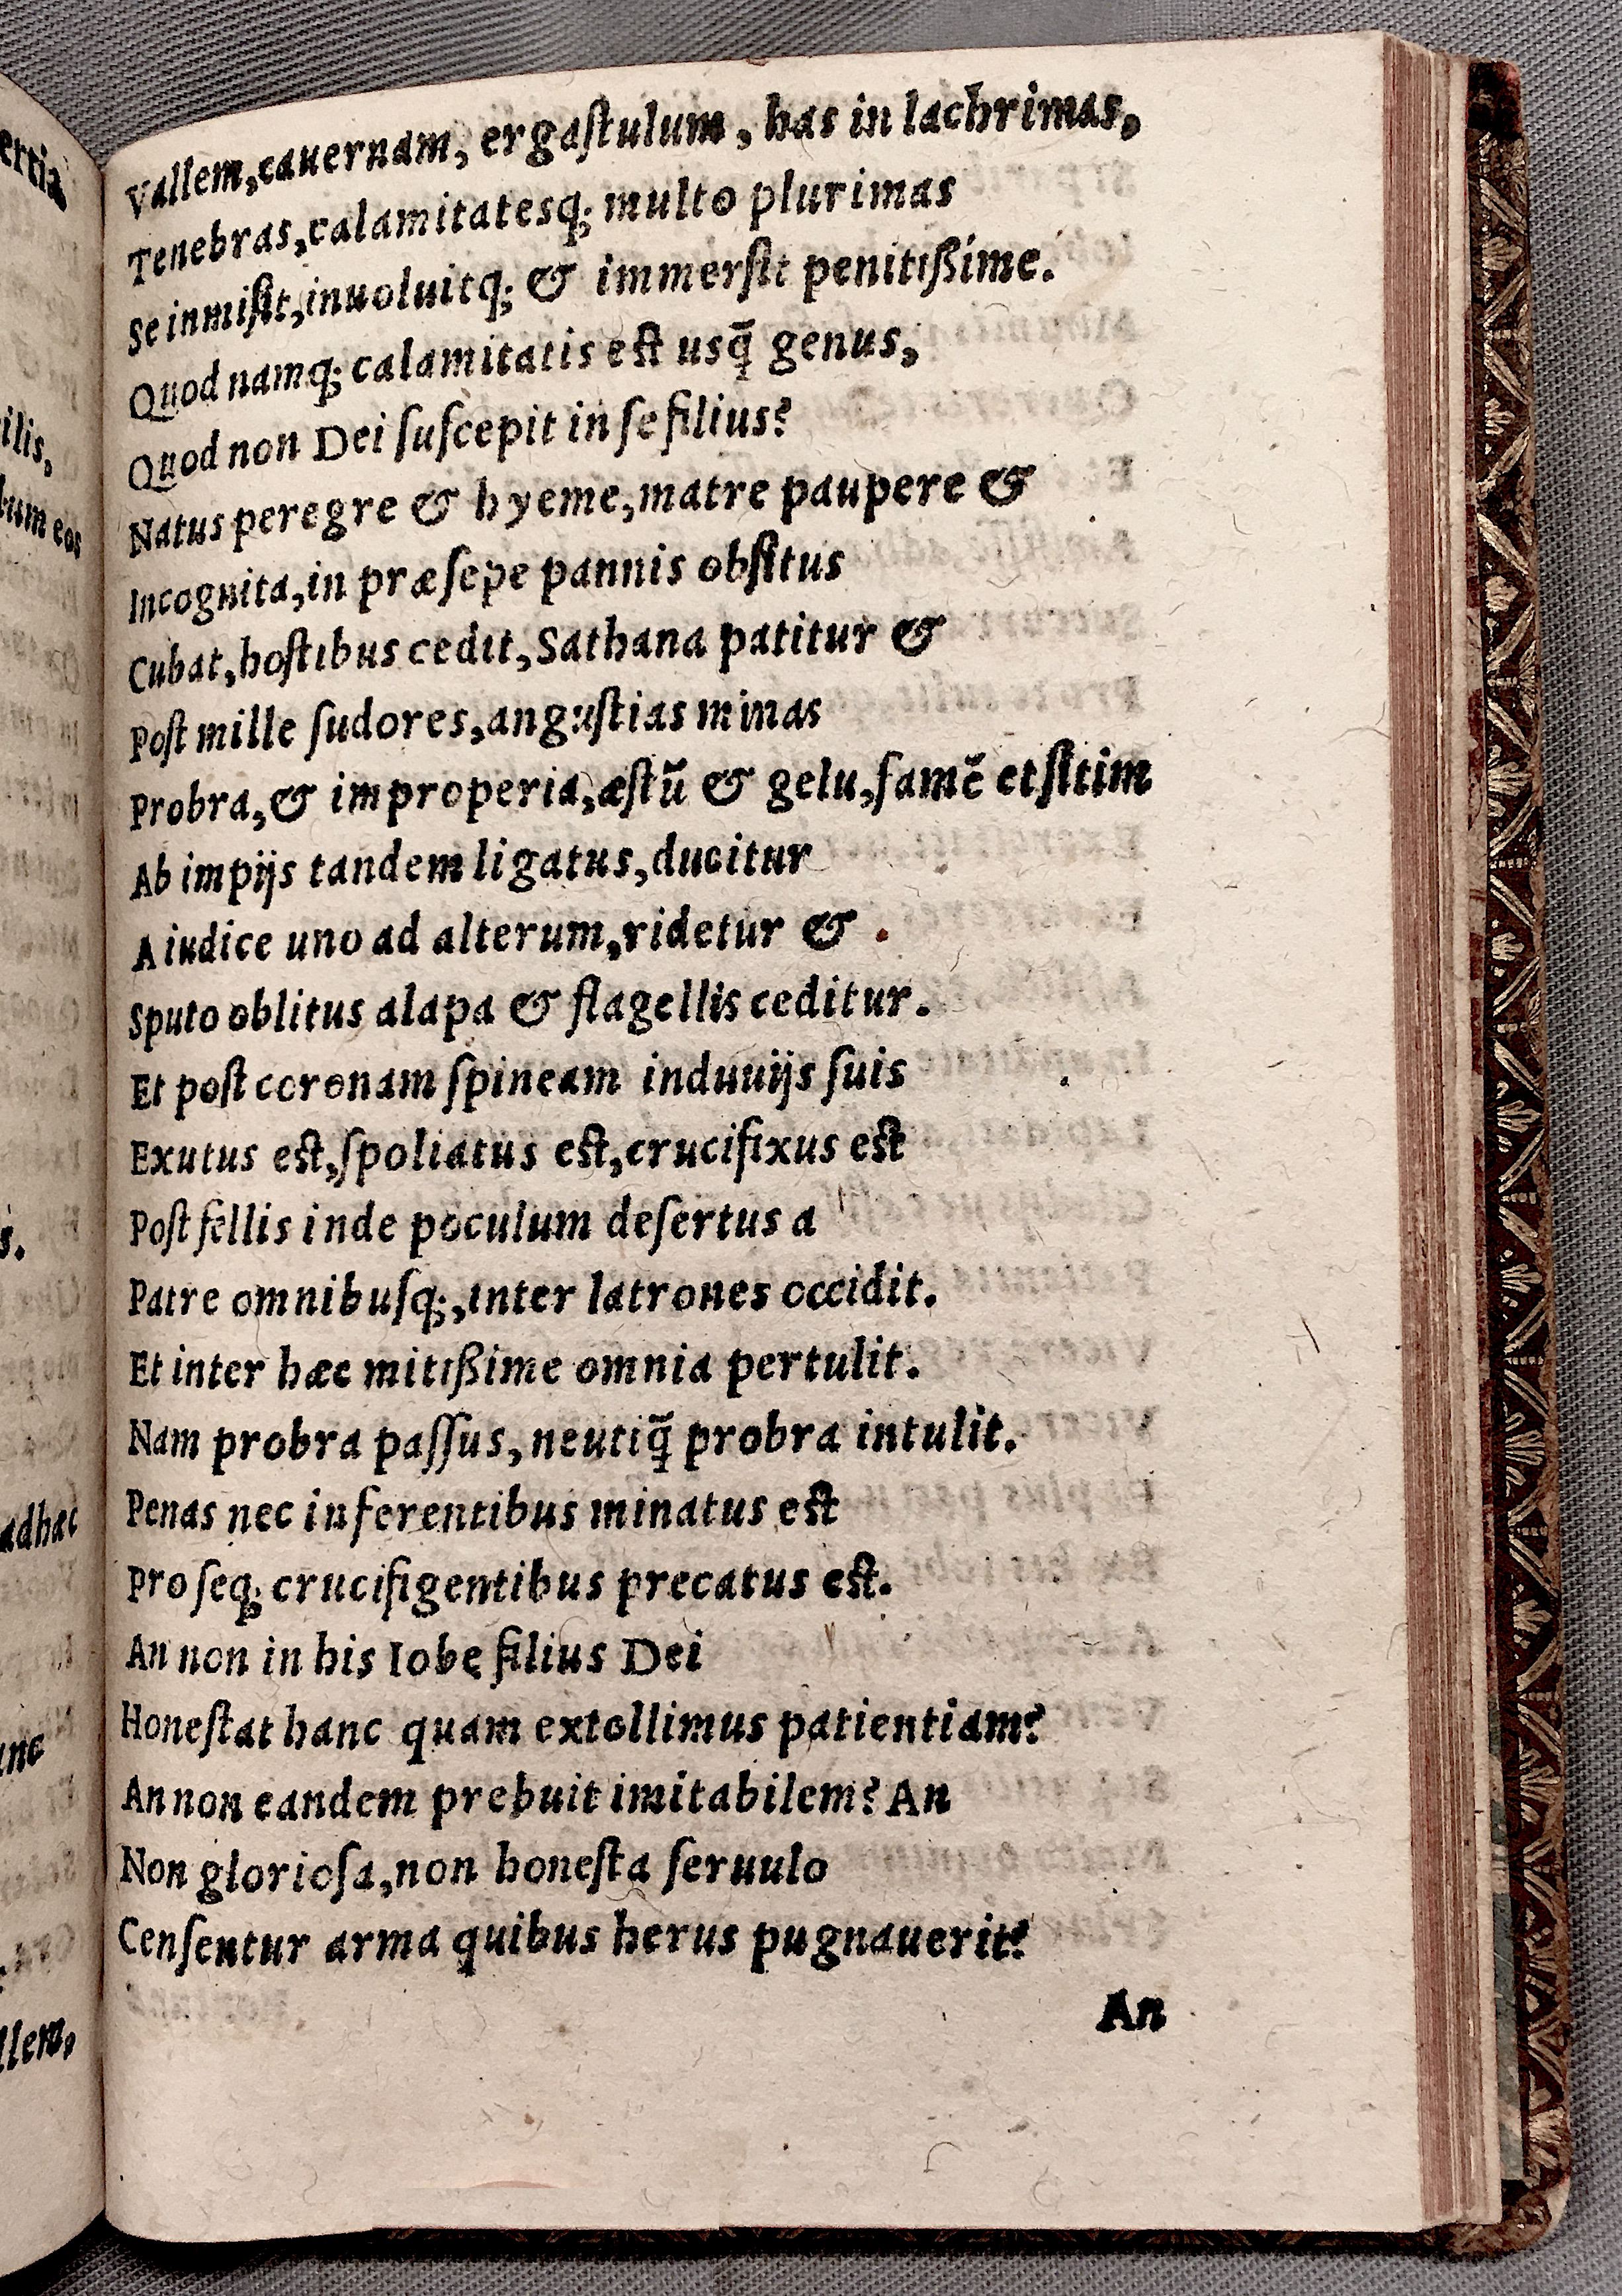 Vallem,cauernam, ergaſtulum, has in lachrimas,
Tenebras,calamitatesq; multo plurimas
Se inmiſit,inuoluitq; & immerſit penitißime.
Quod namq; calamitatis eſt usq̄ genus,
Quod non Dei ſuſcepit in ſe filius?
Natus peregre & hyeme,matre paupere &
Incognita,in præſepe pannis obſitus
Cubat,hoſtibus cedit,Sathana patitur &
Poſt mille ſudores,anguſtias minas
Probra,& improperia,æſtū & gelu,famē et ſitim
Ab impijs tandem ligatus,ducitur
A iudice uno ad alterum,ridetur &
Sputo oblitus alapa & flagellis ceditur.
Et poſt coronam ſpineam induuijs ſuis
Exutus eſt,ſpoliatus eſt,crucifixus eſt
Poſt fellis inde poculum deſertus a
Patre omnibuſq;,inter latrones occidit.
Et inter hæc mitißime omnia pertulit.
Nam probra paſſus,neutiq̄ probra intulit.
Penas nec inferentibus minatus eſt
Pro ſeq; crucifigentibus precatus eſt.
An non in his Iobę filius Dei
Honeſtat hanc quam extollimus patientiam?
An non eandem prebuit imitabilem? An
Non glorioſa,non honeſta ſeruulo
Cenſentur arma quibus herus pugnauerit?
An
ertia
ilis,
eos
s.
adhæc
llem,